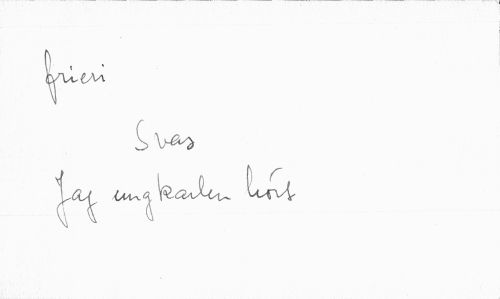 frieri
Svar
Jag ungkarlen hört